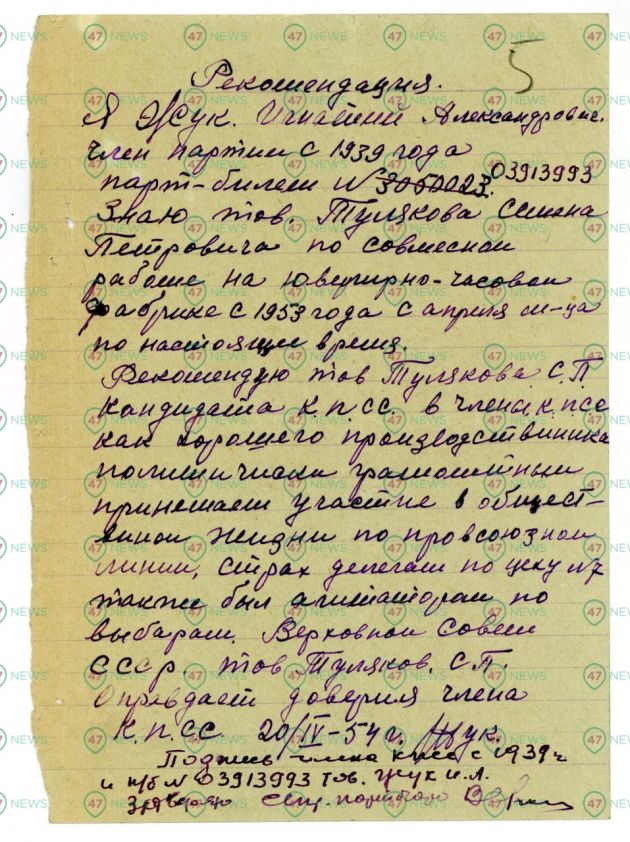 5
Рекомендация.
Я Жук. Игнатий Александрович.
член партии с 1939 года
парт-билет N 3050023. 03913993
Знаю тов. Тулякова Семена
Петровича по совмесной
работе на ювелирно-часовой
фабрике с 1953 года с апреля м-ца
по настоящие время.
Рекомендую тов Тулякова С.П
кандидата К.П.СС. в члена К.ПСС
как хорошего производственика
политически грамотный
принемает участие в общест-
венной жизни по профсоюзной
линии, страх делегат по цеху N7
также был агитатором по
выборам. Верховной Совет
СССР тов Туляков. С.П.
Оправдает доверия члена
К.П.СС 20/IV-54 г. Жук.
Подпись члена кпсс с 1939 г
и п/б N 03913993 тов. Жук И.А.
Заверяю секр. партбюро